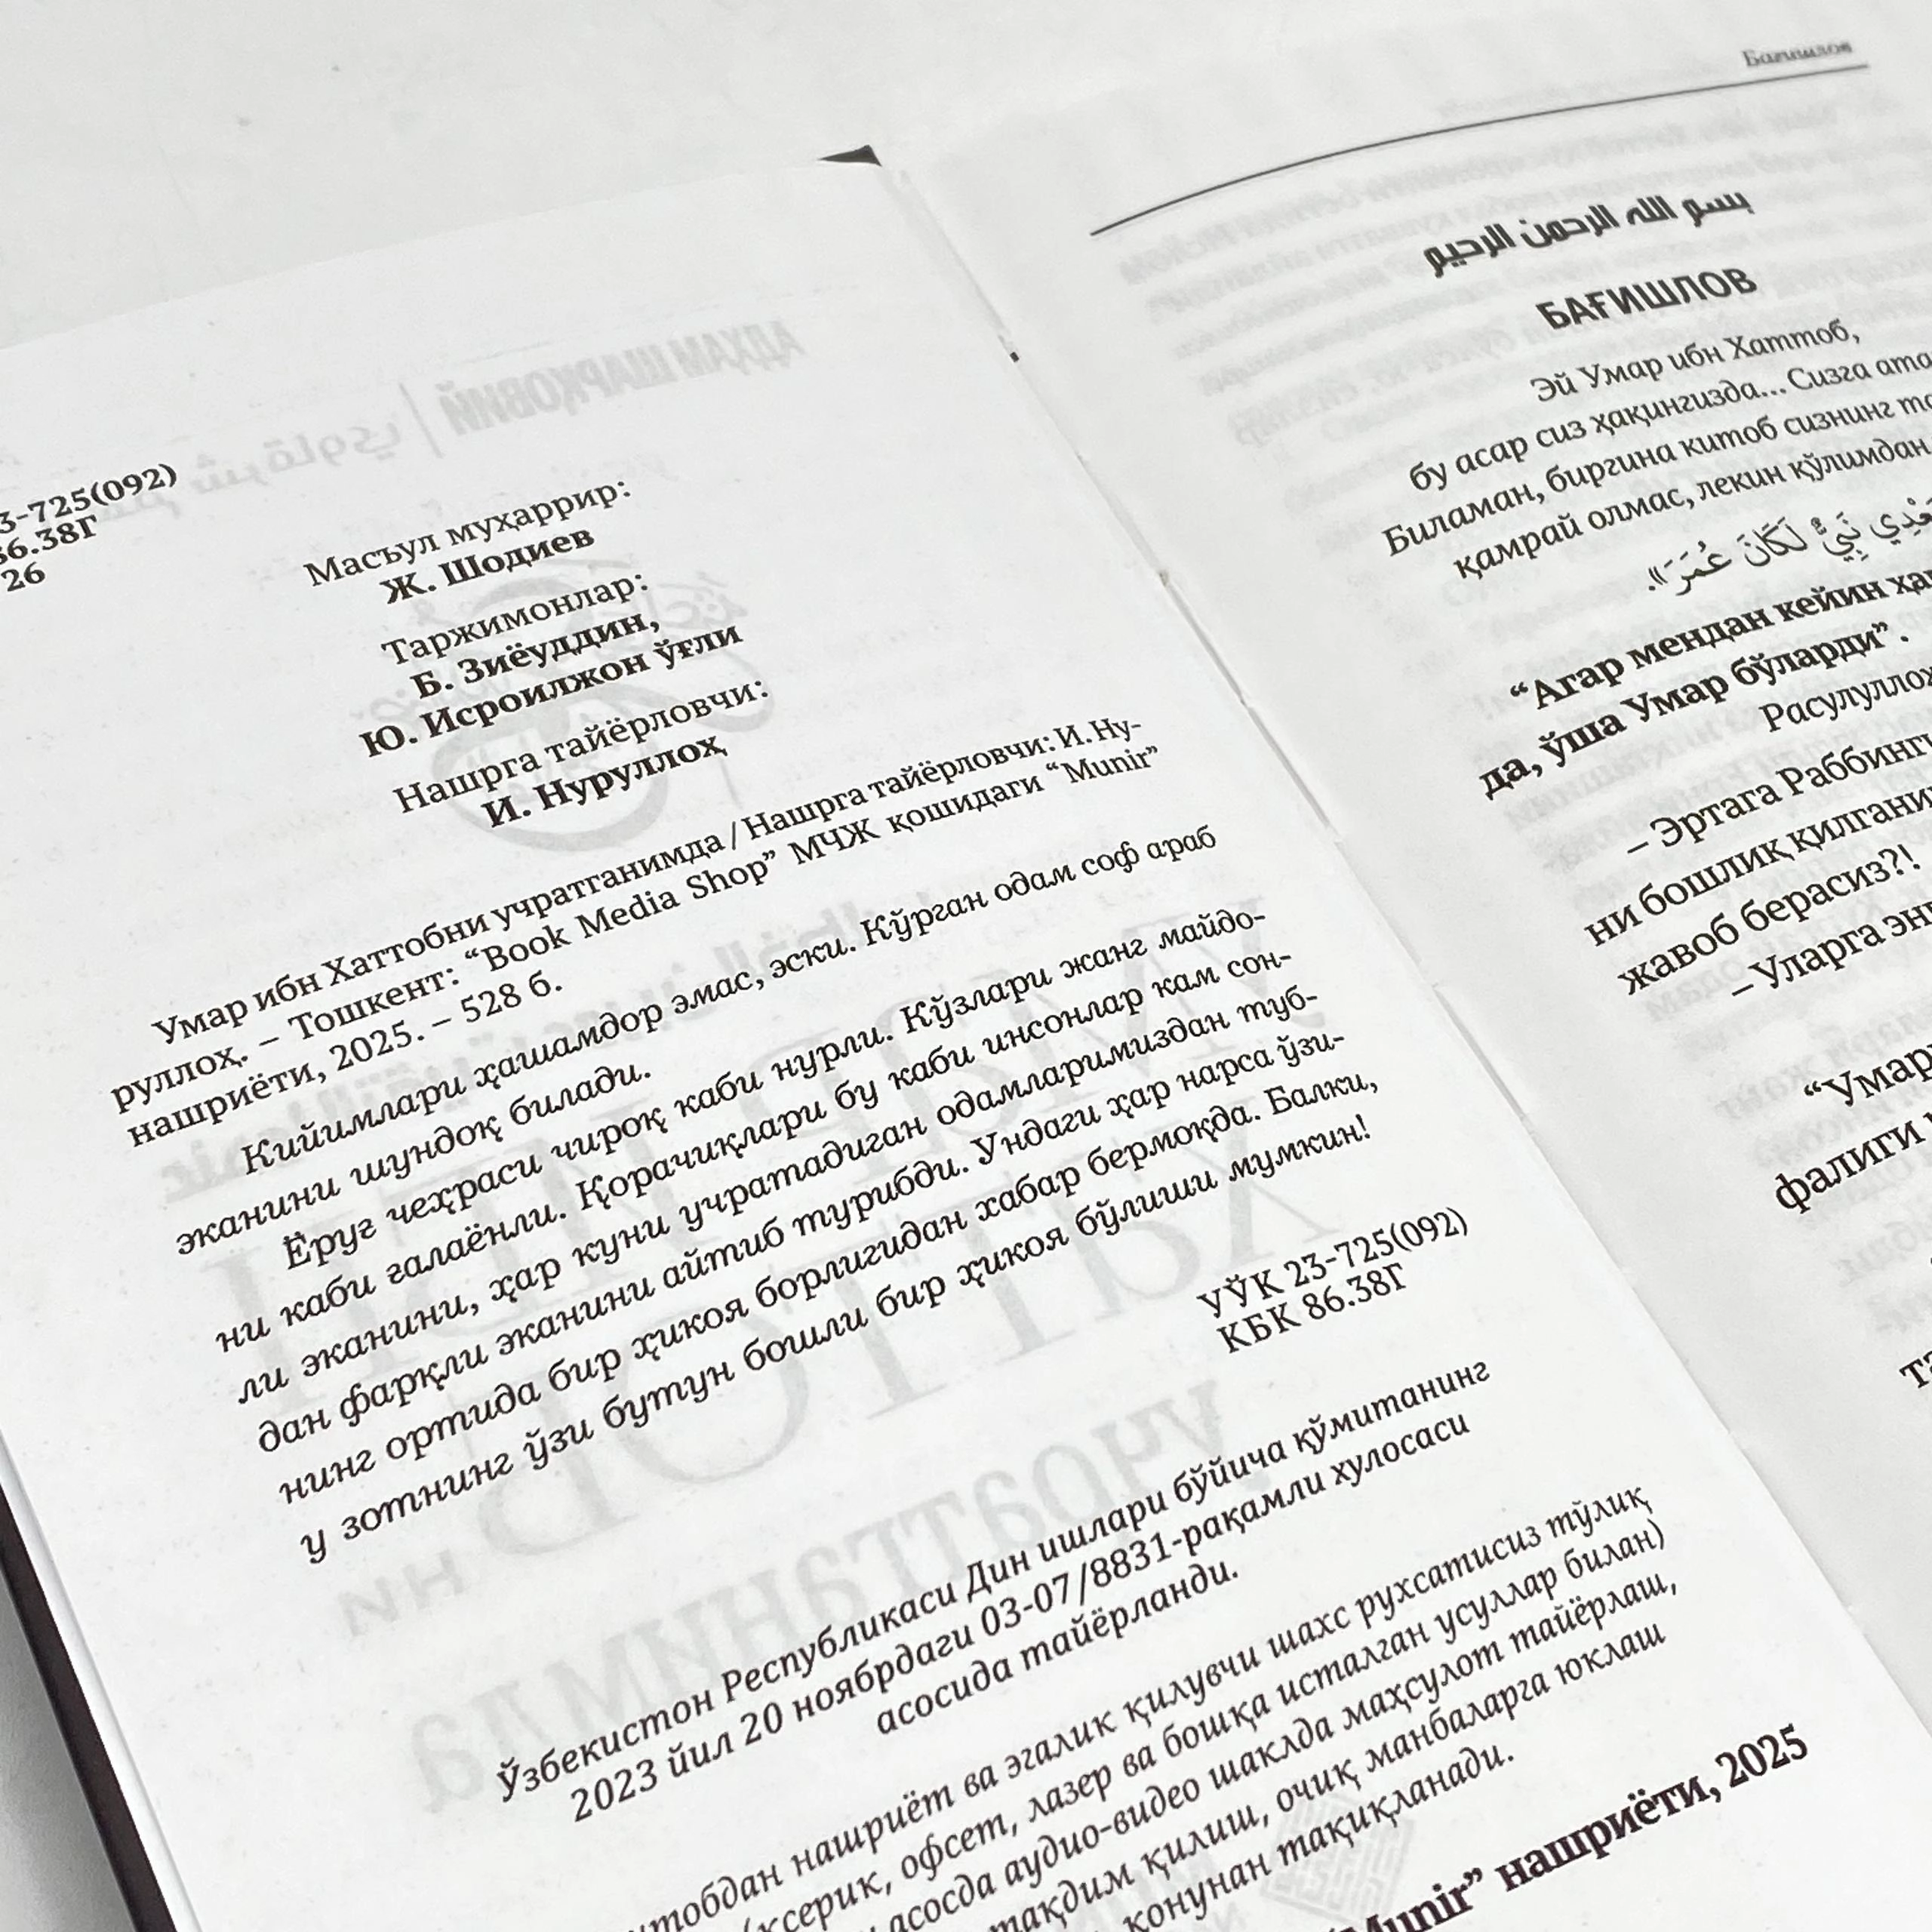 3-725(092)
86.38Г
26
Масъул муҳаррир:
Ж. Шодиев
Таржимонлар:
Б. Зиёуддин,
Ю. Исроилжон ўғли
Нашрга тайёрловчи:
И. Нуруллоҳ
Умар ибн Хаттобни учратганимда / Нашрга тайёрловчи: И. Ну-
руллоҳ. – Тошкент: “Book Media Shop” МЧЖ қошидаги “Munir”
нашриёти, 2025. – 528 б.
Кийимлари ҳашамдор эмас, эски. Кўрган одам соф араб
эканини шундоқ билади.
Ёруғ чеҳраси чироқ каби нурли. Кўзлари жанг майдо-
ни каби ғалаёнли. Қорачиқлари бу каби инсонлар кам сон-
ли эканини, ҳар куни учратадиган одамларимиздан туб-
дан фарқли эканини айтиб турибди. Ундаги ҳар нарса ўзи-
нинг ортида бир ҳикоя борлигидан хабар бермоқда. Балки,
у зотнинг ўзи бутун бошли бир ҳикоя бўлиши мумкин!
УЎК 23-725(092)
КБК 86.38Г
Ўзбекистон Республикаси Дин ишлари бўйича қўмитанинг
2023 йил 20 ноябрдаги 03-07/8831-рақамли хулосаси
асосида тайёрланди.
нашриёт ва эгалик қилувчи шахс рухсатисиз тўлиқ
офсет, лазер ва бошқа исталган усуллар билан)
асосда аудио-видео шаклда маҳсулот тайёрлаш,
тақдим қилиш, очиқ манбаларга юклаш
қонунан тақиқланади.
“Munir” нашриёти, 2025
Бағишлов
بسم الله الرحمن الرحيم
БАҒИШЛОВ
Эй Умар ибн Хаттоб,
бу асар сиз ҳақингизда... Сизга ата
Биламан, биргина китоб сизнинг
қамрай олмас, лекин қўлимдан
نَبِيٌّ لَكَانَ عُمَرَ».
“Агар мендан кейин
да, ўша Умар бўларди” .
Расулуллоҳ
– Эртага Раббинги
ни бошлиқ қилгани
жавоб берасиз?!
– Уларга
“Умар
фалиги